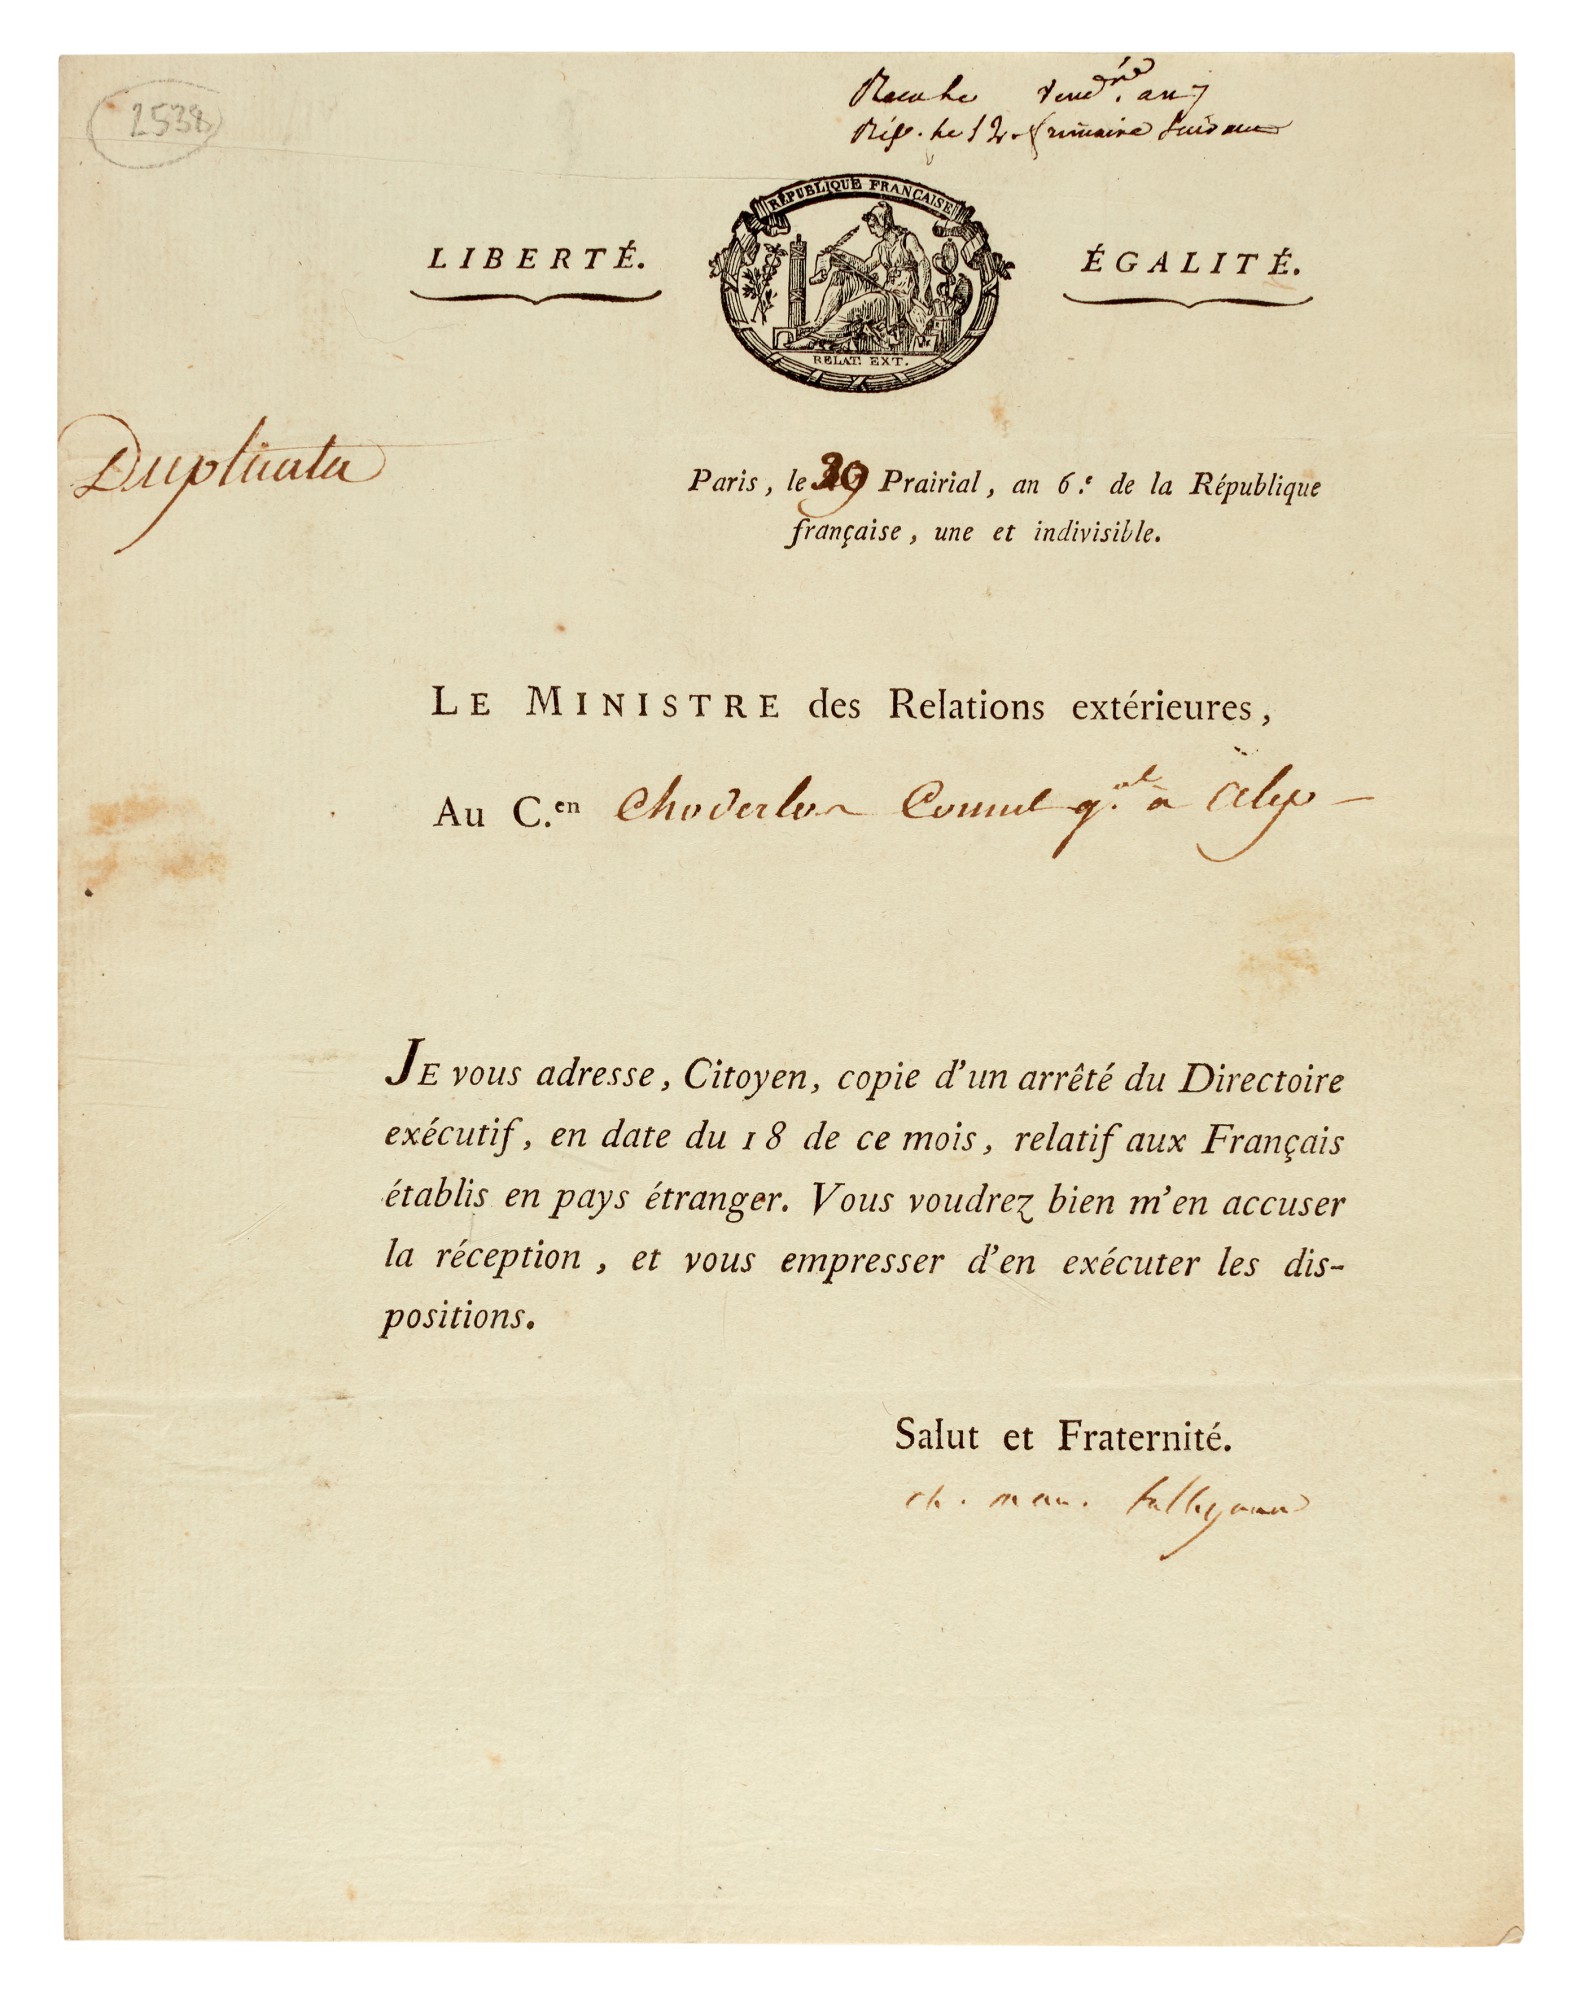 2538
Recu le Vend.re an 7
Rép. le 12. frimaire Suivant
RÉPUBLIQUE FRANÇAISE
LIBERTÉ. ÉGALITÉ.
RELAT. EXT.
Duplicata
Paris, le Prairial, an 6.e de la République
française, une et indivisible.
LE MINISTRE des Relations extérieures,
Au C.en Choderlos Consul g.al à Alep
JE vous adresse, Citoyen, copie d'un arrêté du Directoire
exécutif, en date du 18 de ce mois, relatif aux Français
établis en pays étranger. Vous voudrez bien m'en accuser
la réception, et vous empresser d'en exécuter les dis-
positions.
Salut et Fraternité.
ch. mau. talleyrand